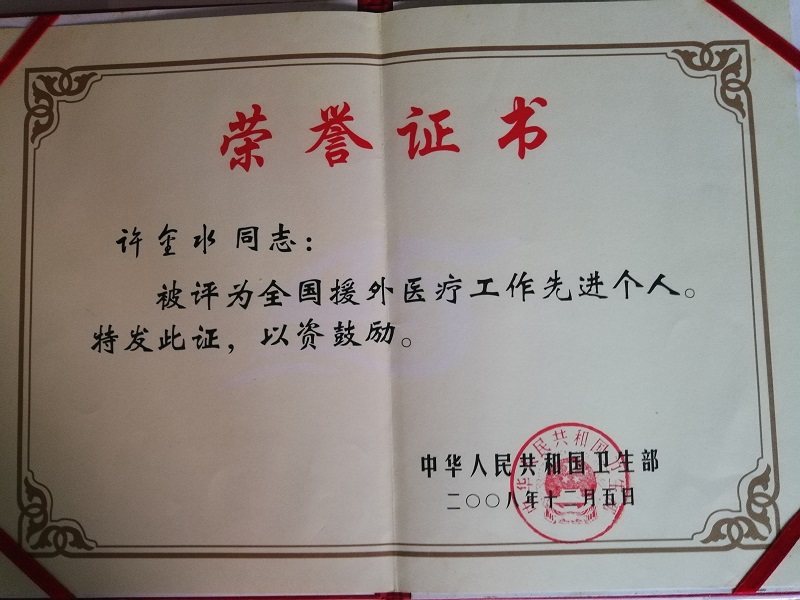 荣誉证书
许金水同志：
被评为全国援外医疗工作先进个人。
特发此证，以资鼓励。
中华人民共和国卫生部
二〇〇八年十二月五日
中华人民共和国卫生部